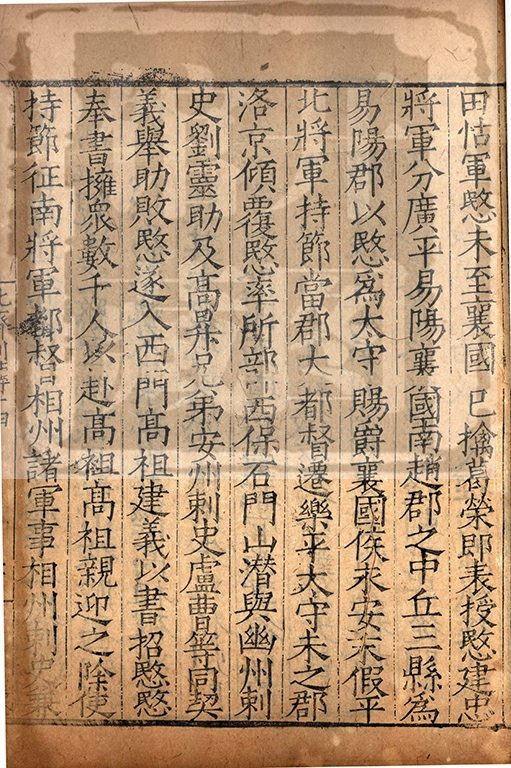 田怙軍愍未至襄國已擒葛榮即表授愍建忠
將軍分廣平易陽襄國南趙郡之中丘三縣爲
易陽郡以愍爲太守賜爵襄國侯永安末假平
北將軍持節當郡大都督遷樂平太守未之郡
洛京傾覆愍率所部西保石門山潜與幽州刺
史劉靈助及髙昇兄弟安州刺史盧曹等同契
義舉助敗愍遂入西門髙祖建義以書招愍愍
奉書擁衆數千人以赴髙祖髙祖親迎之除使
持節征南將軍都督相州諸軍事相州刺史兼